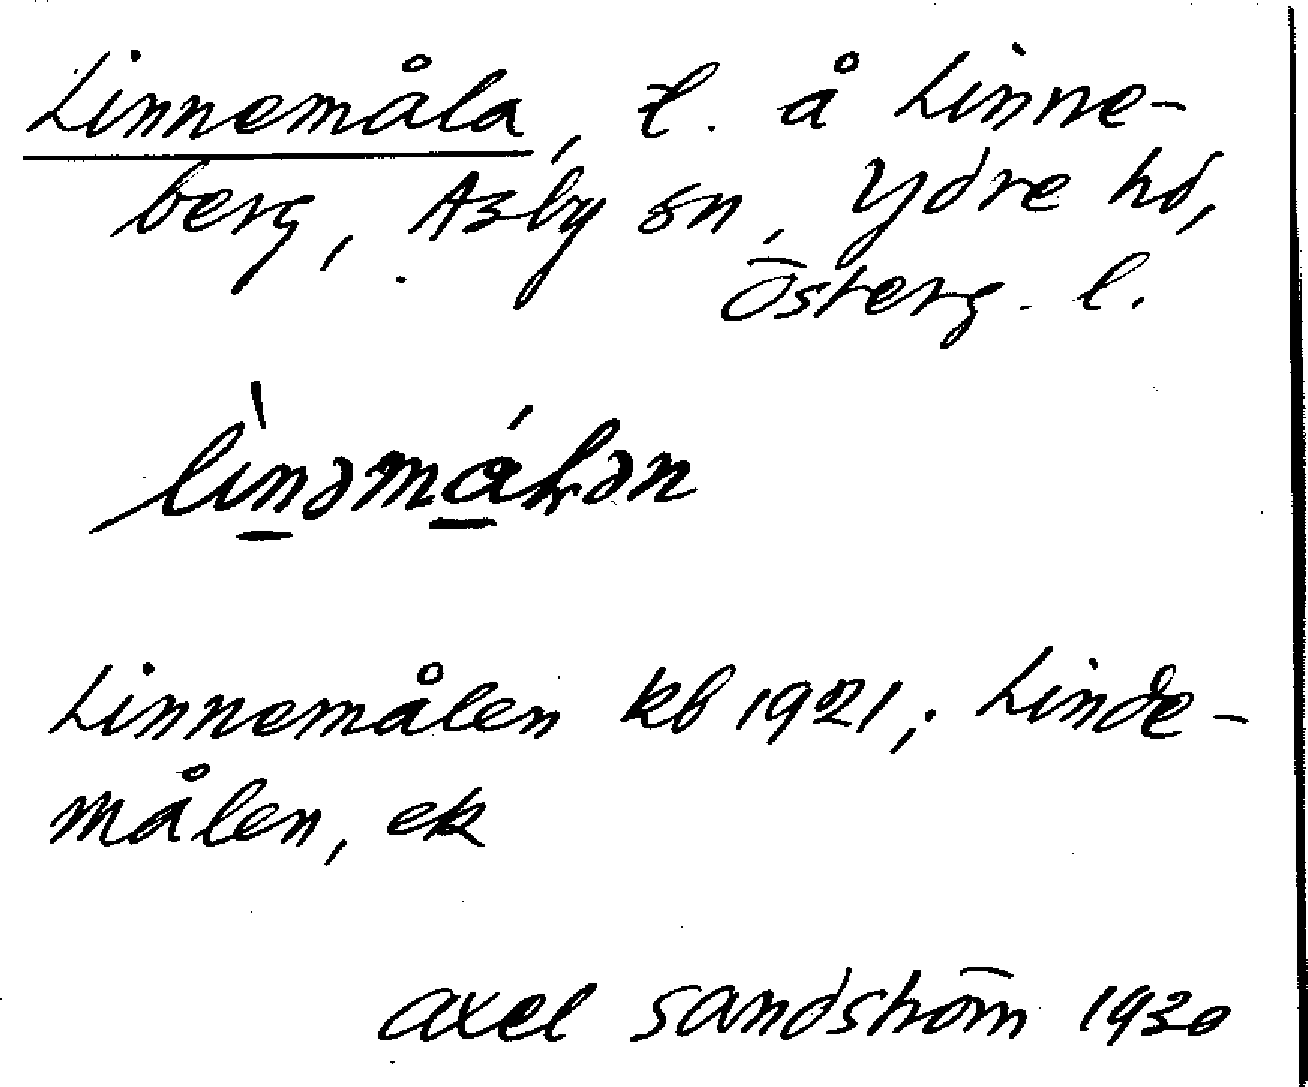 Linnemåla, t. å Linne-
berg, Asby sn, Ydre hd,
Österg. l.
Linnemålen kb 1921; Linde-
målen, ek
Axel Sandström 1930